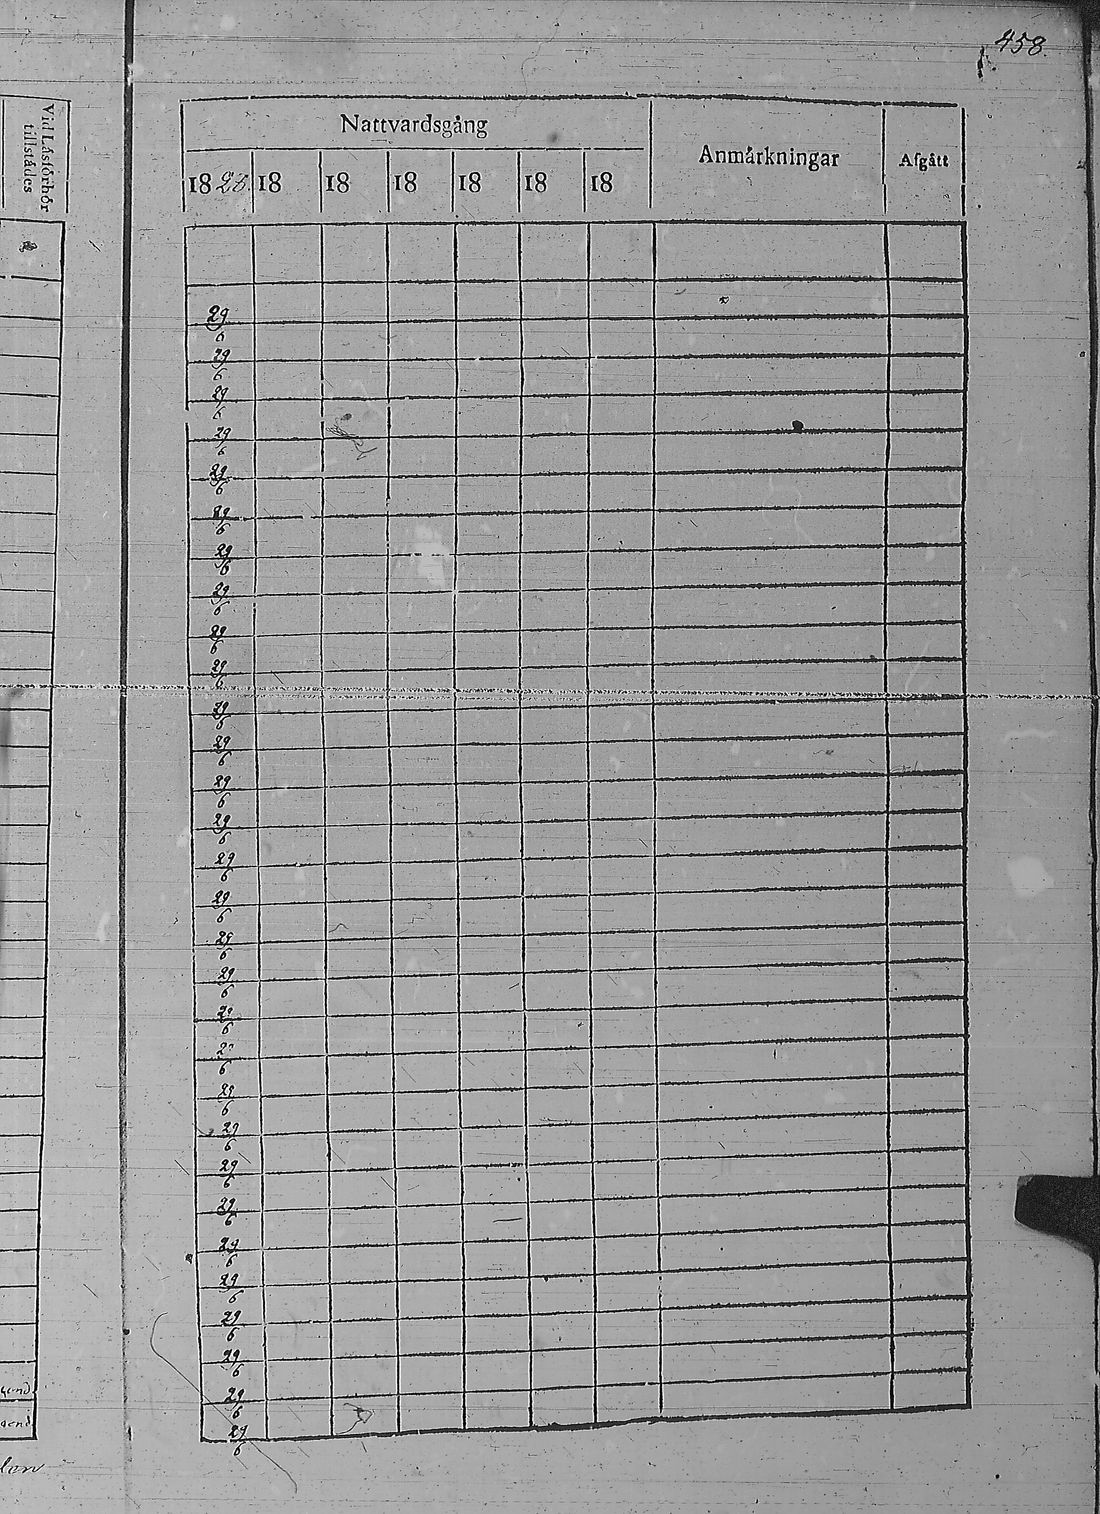 458.
Vid Låsförhör
tillstådes
Nattvardsgång
Anmårkningar
Afgått
1828. 18 18 18 18 18 18
29/6
29/6
29/6
29/6
29/6
29/6
29/6
29/6
29/6
29/6
29/6
29/6
29/6
29/6
29/6
29/6
29/6
29/6
29/6
29/6
29/6
29/6
29/6
29/6
29/6
29/6
29/6
29/6
29/6
29/6